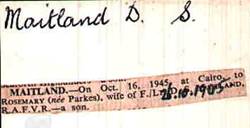 Maitland D. S.
MAITLAND.—On Oct. 16, 1945, at Cairo, to
ROSEMARY (née Parkes), wife of F./Lt. D.
R.A.F.V.R.—a son.
26.10.1945